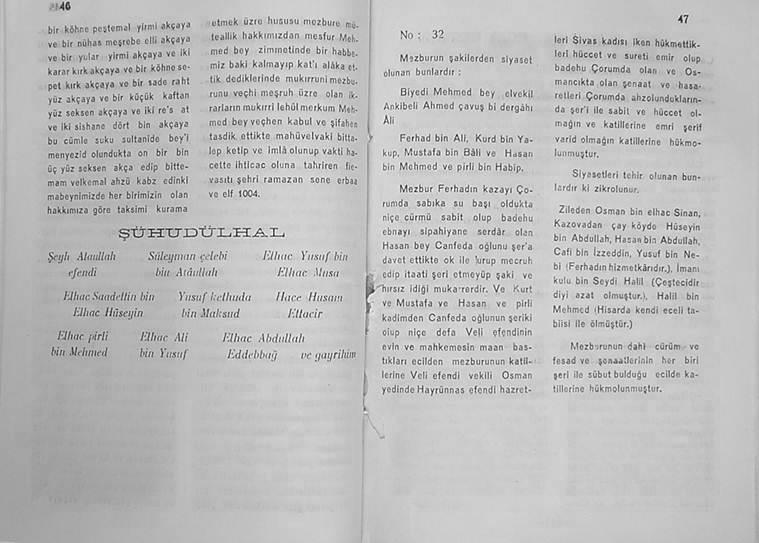 46
bir köhne peştemal yirmi akçaya
ve bir nühas meşrebe elli akçaya
ve bir yular yirmi akçaya ve iki
karar kırk akçaya ve bir köhne se-
pet kırk akçaya ve bir sade raht
yüz akçaya ve bir küçük kaftan
yüz seksen akçaya ve iki re's at
ve iki sishane dört bin akçaya
bu cümle suku sultanide bey'i
menyezid olundukta on bir bin
üç yüz seksen akça edip bitte-
mam velkemal ahzü kabz edinki
mabeynimizde her birimizin olan
hakkımıza göre taksimi kurama
etmek üzre hususu mezbure mü-
teallik hakkımızdan mesfur Meh-
med bey zimmetinde bir habbe-
miz baki kalmayıp kat'ı alâka et-
tik dediklerinde mukırruni mezbu-
runu veçhi meşruh üzre olan ik-
rarların mukırrı lehül merkum Meh-
med bey veçhen kabul ve şifahen
tasdik ettikte mahüvelvaki bitta-
lep ketip ve imlâ olunup vakti ha-
cette ihticac oluna tahriren fie-
vasıtı şehri ramazan sene erbaa
ve elf 1004.
ŞÜHUDÜLHAL
Şeyh Ataullah Süleyman çelebi Elhac Yusuf bin
efendi bin Atâullah Elhac Musa
Elhac Saadettin bin Yusuf kethuda Hace Husam
Elhac Hüseyin bin Maksud Ettacir
Elhac pirli Elhac Ali Elhac Abdullah
bin Mehmed bin Yusuf Eddebbağ ve gayrihüm
47
No : 32
Mezburun şakilerden siyaset
olunan bunlardır :
Biyedi Mehmed bey elvekil
Ankibeli Ahmed çavuş bi dergâhı
Âli
Ferhad bin Ali, Kurd bin Ya-
kup, Mustafa bin Bâli ve Hasan
bin Mehmed ve pirli bin Habip.
Mezbur Ferhadın kazayı Ço-
rumda sabıka su başı oldukta
niçe cürmü sabit olup badehu
ebnayı sipahiyane serdâr olan
Hasan bey Canfeda oğlunu şer'a
davet ettikte ok ile vurup mecruh
edip itaati şeri etmeyüp şaki ve
hırsız idiği mukarrerdir. Ve Kurt
ve Mustafa ve Hasan ve pirli
kadimden Canfeda oğlunun şeriki
olup niçe defa Veli efendinin
evin ve mahkemesin maan bas-
tıkları ecilden mezburunun katil-
lerine Veli efendi vekili Osman
yedinde Hayrünnas efendi hazret-
leri Sivas kadısı iken hükmettik-
leri hüccet ve sureti emir olup
badehu Çorumda olan ve Os-
mancıkta olan şenaat ve hasa-
retleri Çorumda ahzolundukların-
da şer'i ile sabit ve hüccet ol-
mağın ve katillerine emri şerif
varid olmağın katillerine hükmo-
lunmuştur.
Siyasetleri tehir olunan bun-
lardır ki zikrolunur.
Zileden Osman bin elhac Sinan,
Kazovadan çay köyde Hüseyin
bin Abdullah, Hasan bin Abdullah,
Cafi bin İzzeddin, Yusuf bin Ne-
bi (Ferhadın hizmetkârıdır.), İmam
kulu bin Seydi Halil (Çeştecidir
diyi azat olmuştur.), Halil bin
Mehmed (Hisarda kendi eceli ta-
biisi ile ölmüştür.)
Mezburunun dahi cürüm ve
fesad ve şenaatlerinin her biri
şeri ile sübut bulduğu ecilde ka-
tillerine hükmolunmuştur.